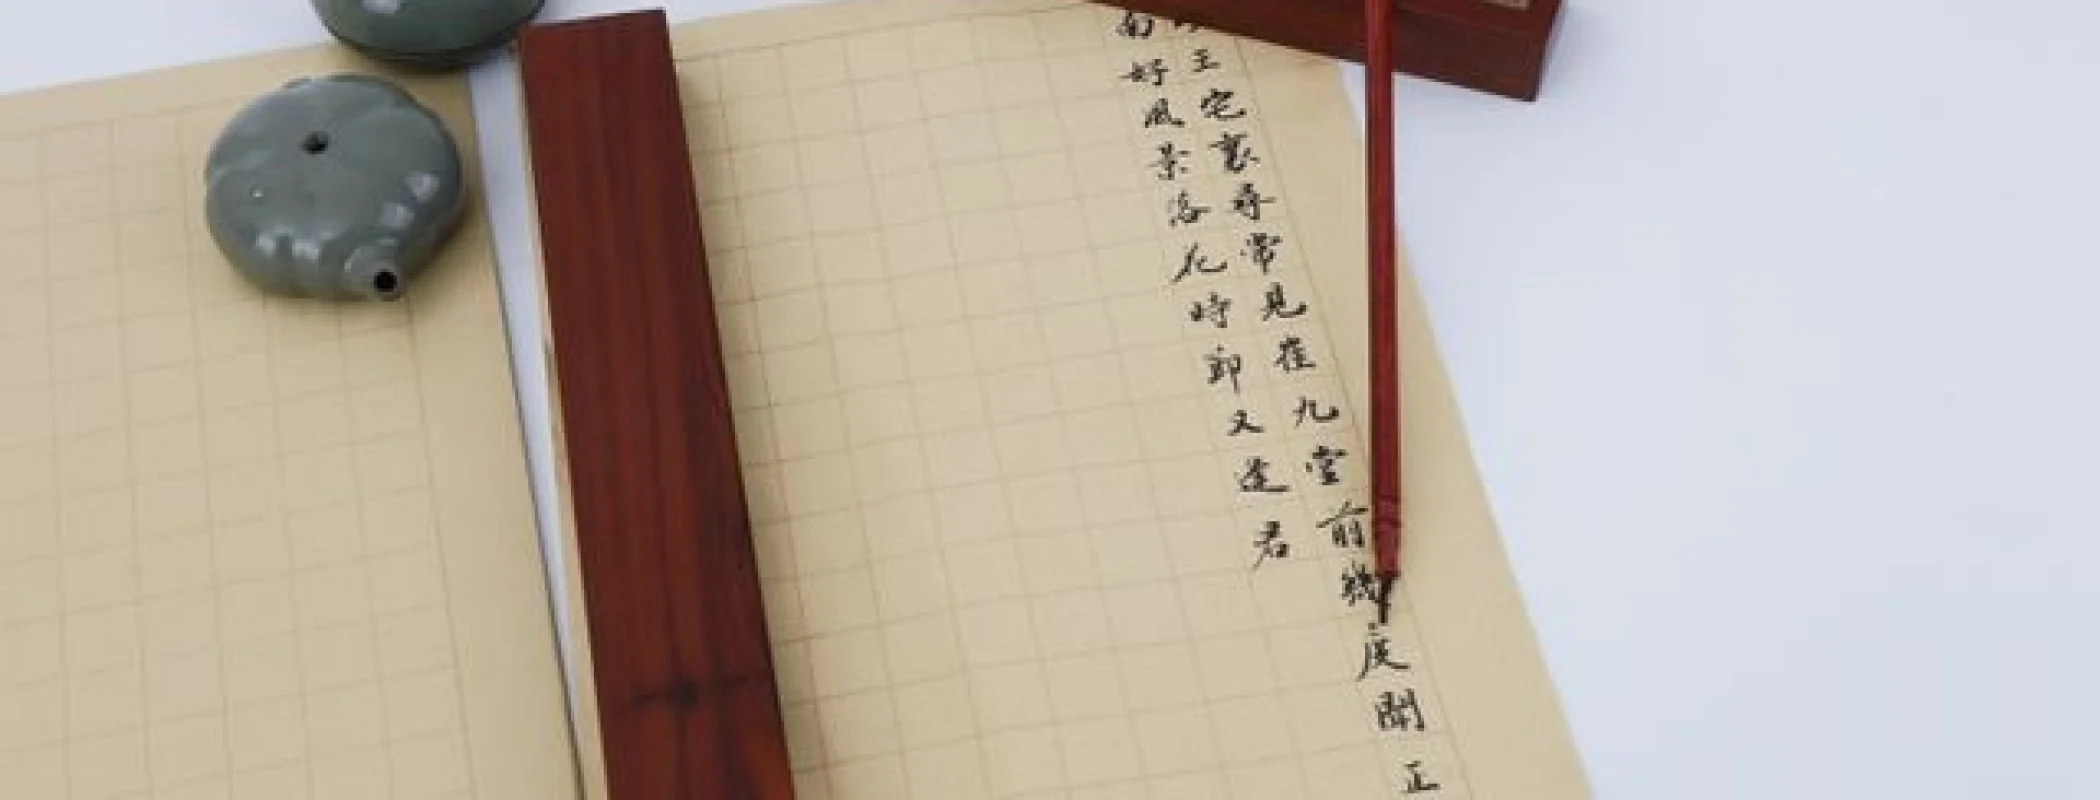 王宅裏尋常見崔九堂前幾度聞正
南好風景落花時卻又逢君